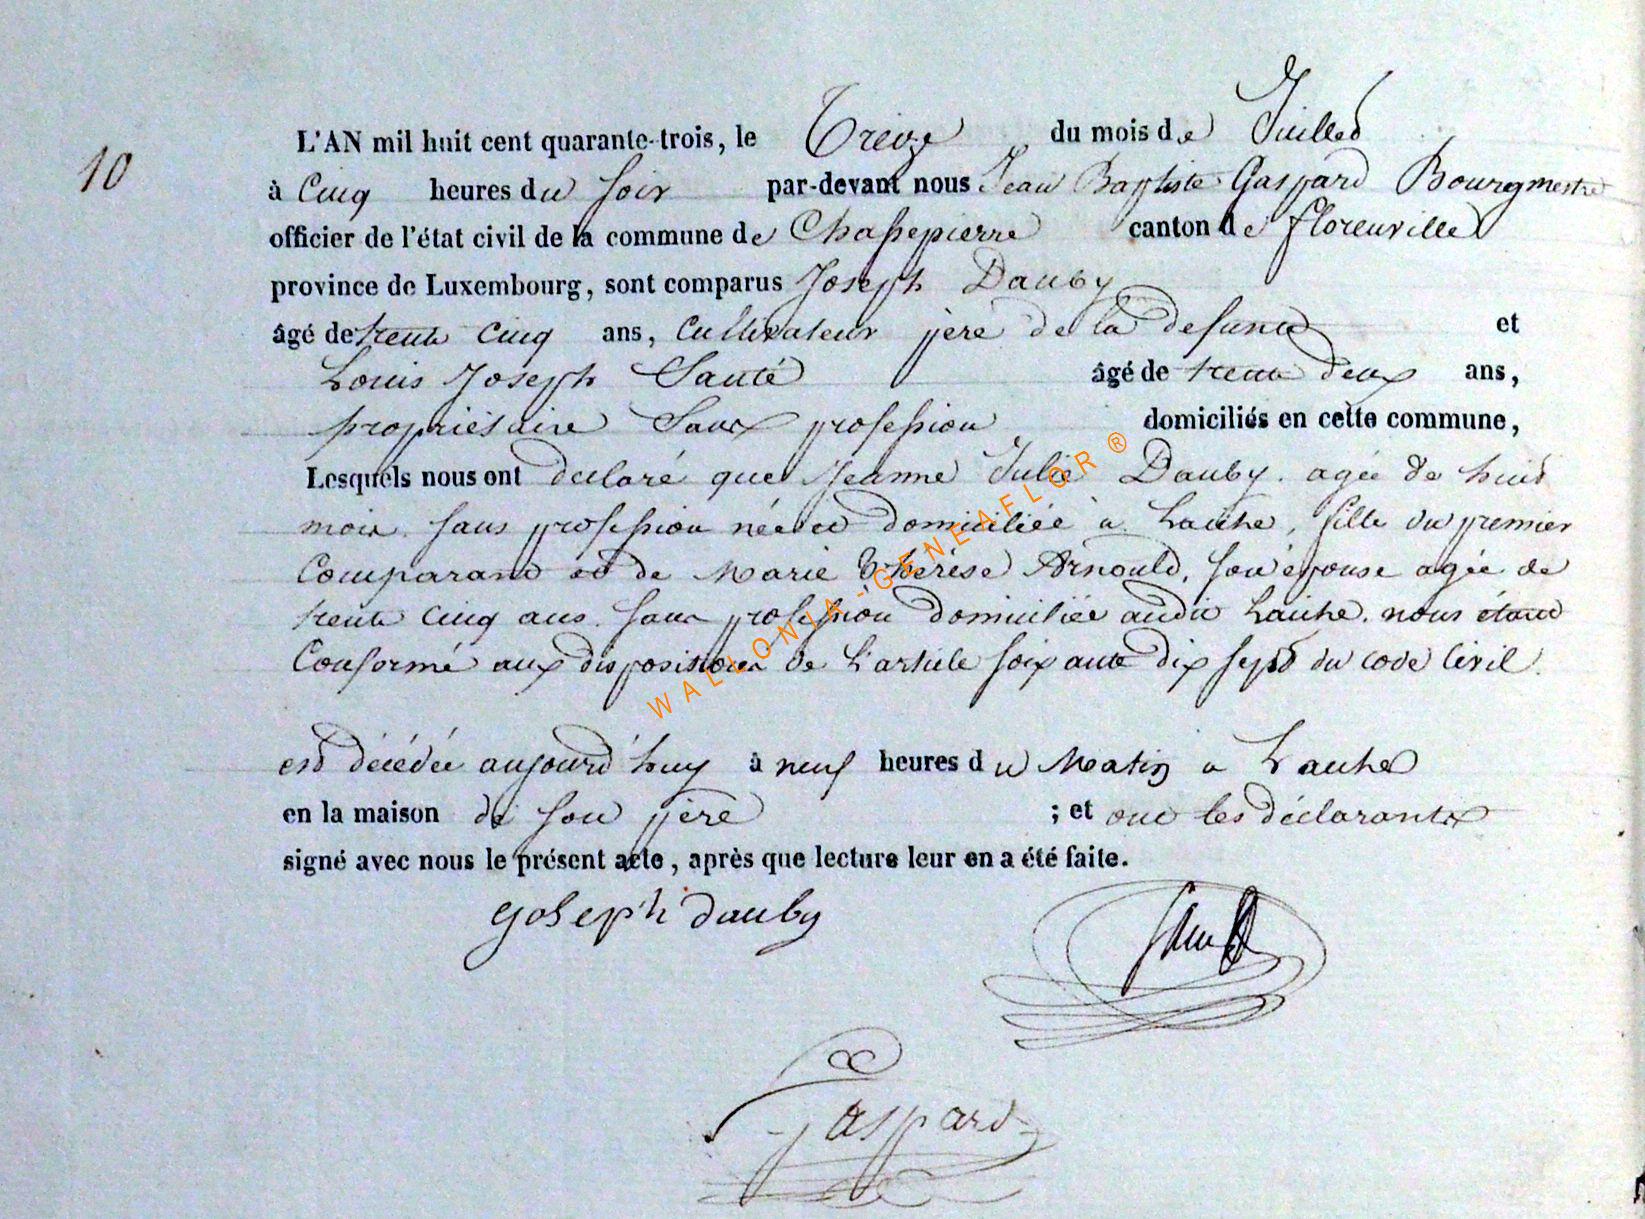 10
L'AN mil huit cent quarante-trois, le Treize du mois de Juillet
à Cinq heures du soir par-devant nous Jean Baptiste Gaspard Bourgmestre
officier de l'état civil de la commune de Chassepierre canton de florenville
province de Luxembourg, sont comparus Joseph Dauby
âgé de trente cinq ans, Cultivateur père de la defunte et
Louis Joseph Santé âgé de trente deux ans,
propriétaire Sans profession domiciliés en cette commune,
Lesquels nous ont declaré que Jeanne Julie Dauby. agée de huit
mois. sans profession née et domiciliée à Laiche, fille du premier
Comparant et de Marie Thérèse Arnould, son épouse agée de
trente cinq ans. sans profession domiciliée audit Laiche. nous étant
Conformé aux dispositions de L'article soixante dix sept du code Civil.
est décédée aujourd'huy à neuf heures du Matin a Laiche
en la maison de son père ; et ont les déclarants
signé avec nous le présent acte, après que lecture leur en a été faite.
Joseph dauby
Gaspard
WALLONIA-GENEAFLOR ®